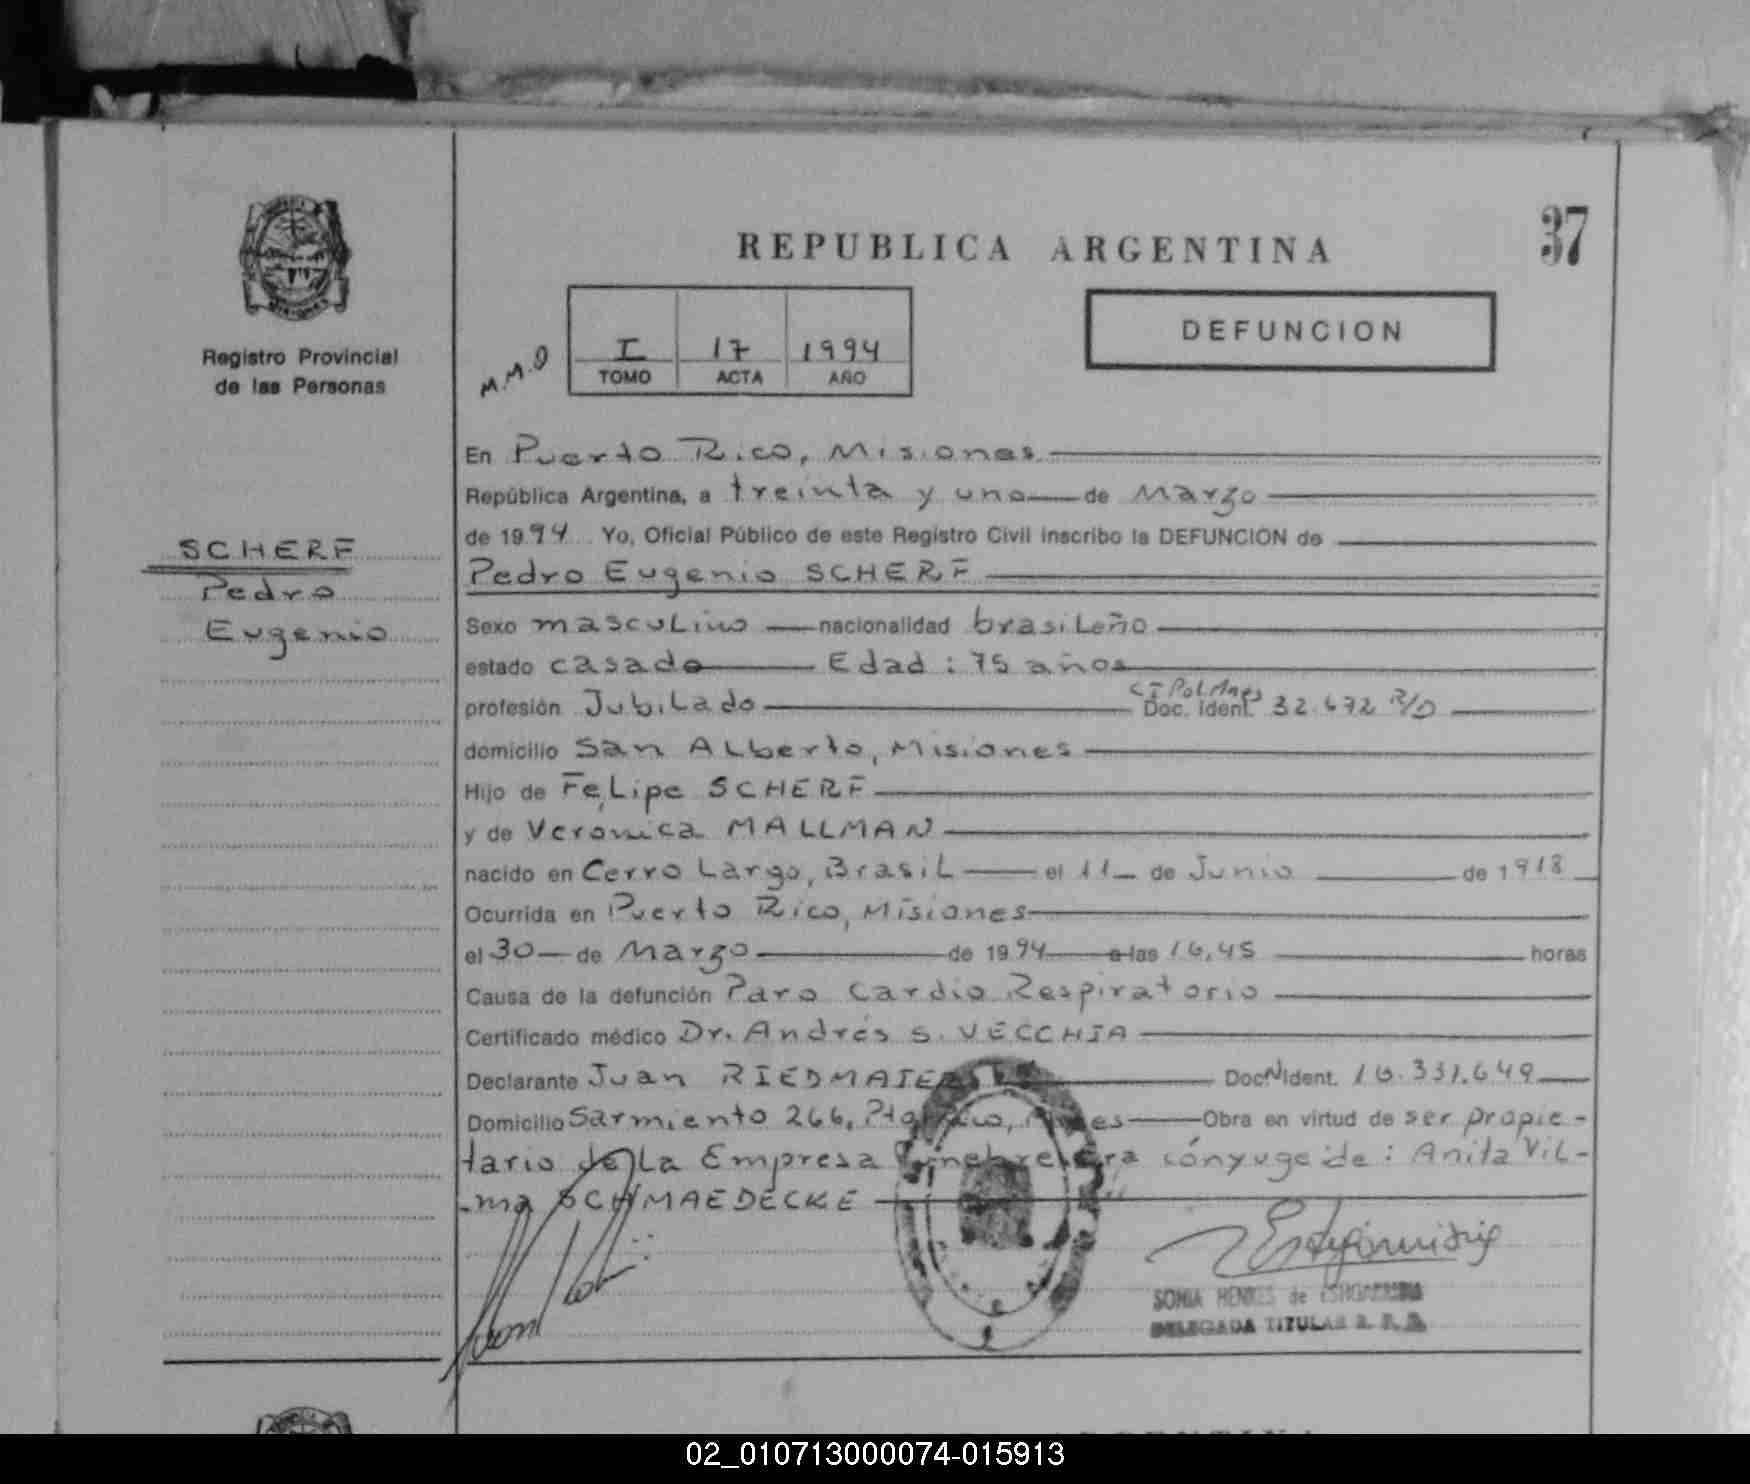 REPUBLICA ARGENTINA
37
Registro Provincial
de las Personas
M.M.O
I 17 1994
TOMO ACTA AÑO
DEFUNCION
SCHERF
Pedro
Eugenio
En Puerto Rico, Misiones
República Argentina, a treinta y uno de Marzo
de 1994 Yo, Oficial Público de este Registro Civil inscribo la DEFUNCION de
Pedro Eugenio SCHERF
Sexo masculino nacionalidad brasileño
estado casado Edad: 75 años
profesión Jubilado CI Pol. Mnes Doc. Ident. 32.672 R/D
domicilio San Alberto, Misiones
Hijo de Felipe SCHERF
y de Verónica MALLMAN
nacido en Cerro Largo, Brasil el 11 de Junio de 1918
Ocurrida en Puerto Rico, Misiones
el 30 de Marzo de 1994 a las 16,45 horas
Causa de la defunción Paro Cardio Respiratorio
Certificado médico Dr. Andrés S. VECCHIA
Declarante Juan RIEDMAIER Doc. Ident. 16.331.649
Domicilio Sarmiento 266, Pto Rico, Mnes Obra en virtud de ser propie-
tario de La Empresa Funebre era cónyuge de: Anita Vil-
-ma SCHMAEDECKE
SONIA HENKES de
DELEGADA TITULAR R. P. P.
02_010713000074-015913